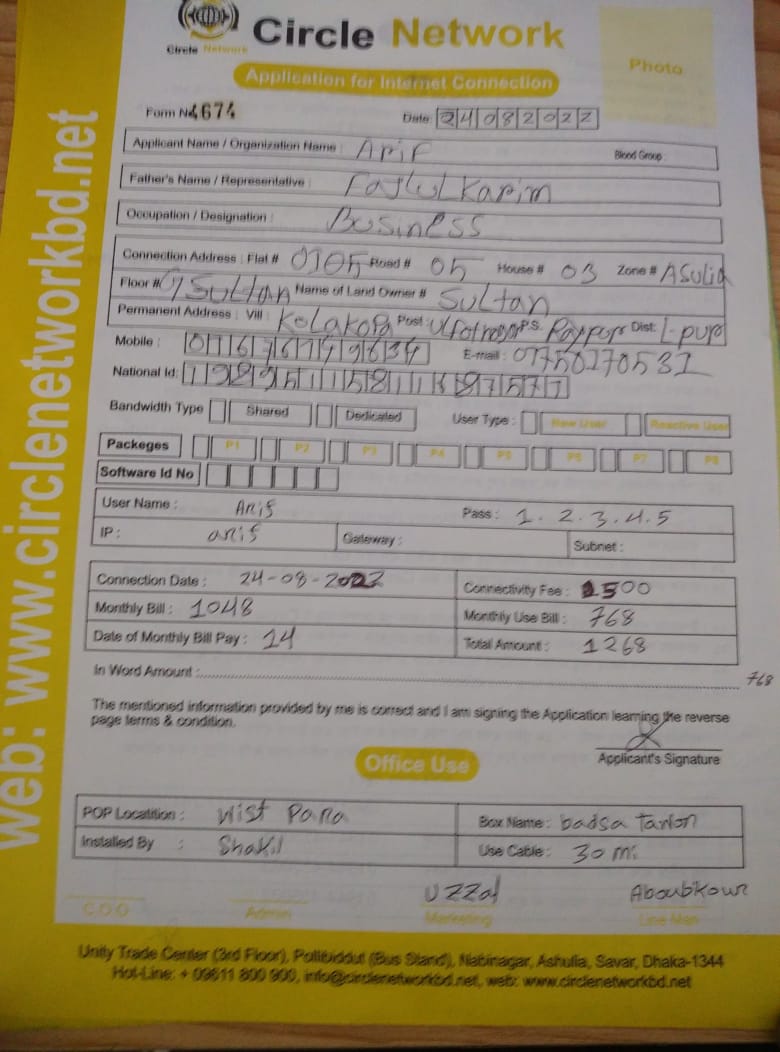 Circle Network
Circle Network
Application for Internet Connection
Photo
web: www.circlenetworkbd.net
Form No 4674 Date: 24082022
Applicant Name / Organization Name : Arif Blood Group :
Father's Name / Representative : Fajlul Karim
Occupation / Designation : Business
Connection Address : Flat # 0105 Road # 05 House # 03 Zone # ASulia
Floor # Sultan Name of Land Owner # Sultan
Permanent Address : Vill : Kolakopa Post: P.S. Raypur Dist: L-pur
Mobile : E-mail : 01750170531
National Id:
Bandwidth Type Shared Dedicated User Type : New User Reactive User
Packeges P1 P2 P3 P4 P5 P6 P7 P8
Software Id No
User Name : Arif Pass : 1.2.3.4.5
IP : arif Gateway : Subnet :
Connection Date : 24-08-2022 Connectivity Fee : 1500
Monthly Bill : 1048 Monthly Use Bill : 768
Date of Monthly Bill Pay : 14 Total Amount : 1268
In Word Amount : 768
The mentioned information provided by me is correct and I am signing the Application learning the reverse
page terms & condition.
Applicant's Signature
Office Use
POP Locatition : Wist Para Box Name : badsa Tarlon
Installed By : Shakil Use Cable : 30 mi
Uzzal Aboubkour
C.O.O Admin Marketing Line Man
Unity Trade Center (3rd Floor), Pollibiddut (Bus Stand), Nabinagar, Ashulia, Savar, Dhaka-1344
Hot-Line: + 09611 800 900, info@circlenetworkbd.net, web: www.circlenetworkbd.net